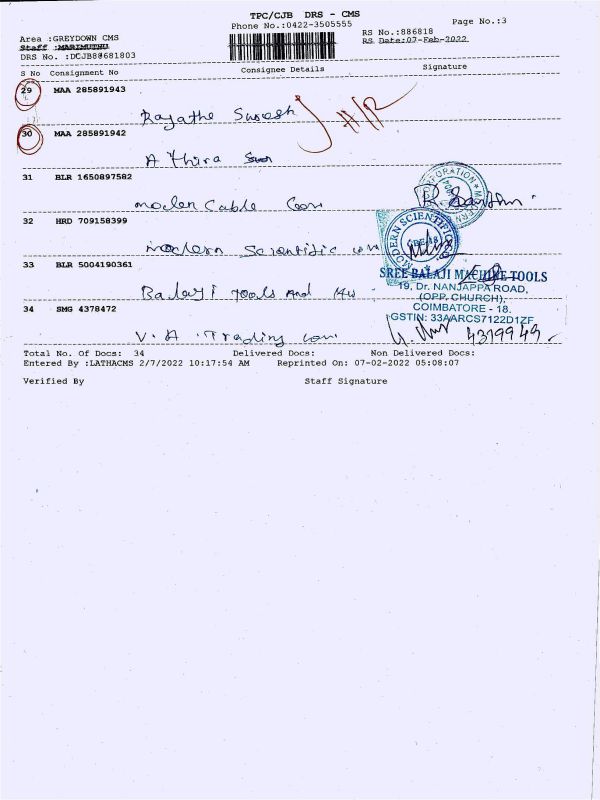 TPC/CJB DRS - CMS
Phone No.:0422-3505555
Page No.:3
Area :GREYDOWN CMS
RS No.:886818
Staff :MARIMUTHU
RS Date:07-Feb-2022
DRS No. :DCJB88681803
S No Consignment No Consignee Details Signature
29 MAA 285891943
Suresh
30 MAA 285891942
Athira
31 BLR 1650897582
Modern Cable Com
32 HRD 709158399
Modern Scientific com
MODERN SCIENTIFIC
33 BLR 5004190361
Balaji Tools And
SREE BALAJI MACHINE TOOLS
19, Dr. NANJAPPA ROAD,
(OPP. CHURCH),
COIMBATORE - 18.
GSTIN: 33AARCS7122D1ZF
34 SMG 4378472
V. A. Trading com
Total No. Of Docs: 34 Delivered Docs: Non Delivered Docs:
Entered By :LATHACMS 2/7/2022 10:17:54 AM Reprinted On: 07-02-2022 05:08:07
Verified By Staff Signature